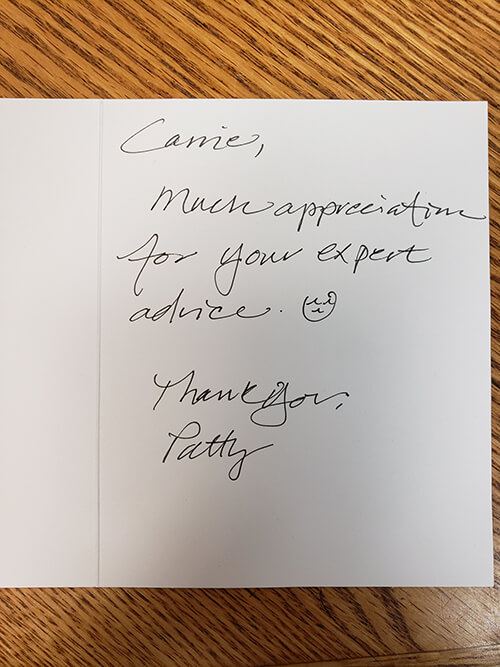 Carrie,
Much appreciation
for your expert
advice.
Thank you,
Patty